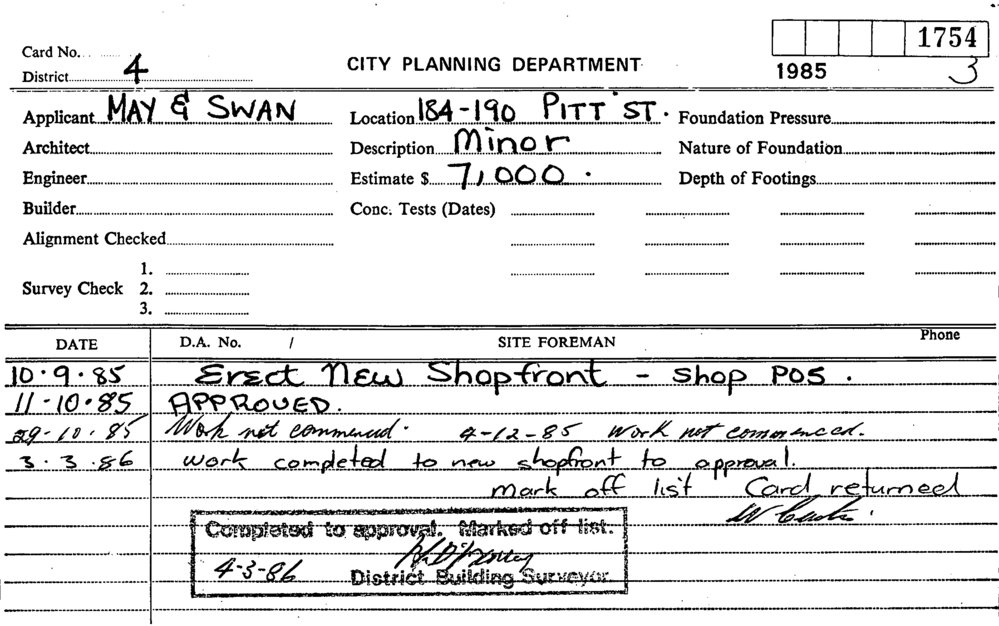 Card No.
1754
District 4
CITY PLANNING DEPARTMENT
1985
3
Applicant MAY & SWAN
Location 184-190 PITT ST.
Foundation Pressure
Architect
Description Minor
Nature of Foundation
Engineer
Estimate $ 7,000.
Depth of Footings
Builder
Conc. Tests (Dates)
Alignment Checked
Survey Check 1.
2.
3.
DATE D.A. No. / SITE FOREMAN Phone
10.9.85 Erect New Shopfront - Shop POS.
11-10.85 APPROVED.
29-10.85 Work not commenced. 4-12-85 Work not commenced.
3.3.86 work completed to new shopfront to approval.
mark off list Card returned
Completed to approval. Marked off list.
4-3-86
District Building Surveyor.